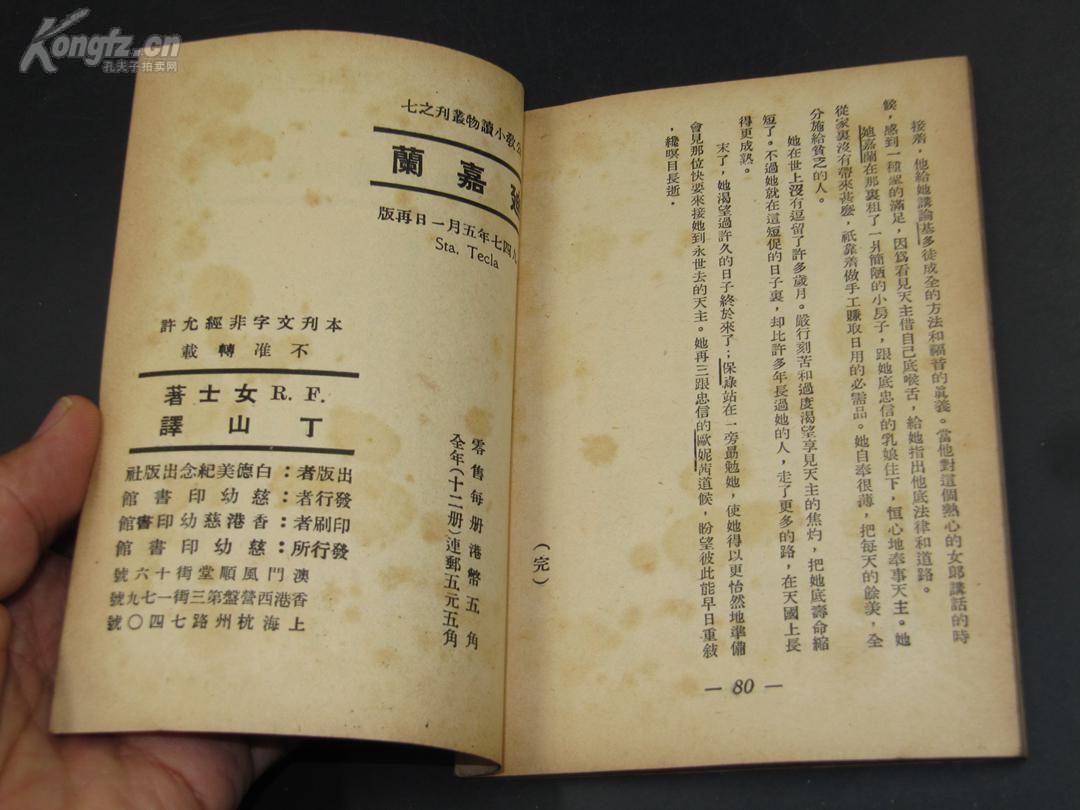 Kongfz.cn
孔夫子拍卖网
接着，他給她講論基多徒成全的方法和福音的眞義。當他對這個熱心的女郎講話的時
候，感到一種室的滿足，因爲看見天主借自己底喉舌，給她指出他底法律和道路。
她嘉蘭在那裏租了一井簡陋的小房子，跟她底忠信的乳娘住下，恒心地奉事天主。她
從家裏沒有帶來甚麽，祇靠着做手工賺取日用的必需品。她自奉很薄，把每天的餘美，全
分施給貧乏的人。
她在世上沒有逗留了許多歲月。嚴行刻苦和過度渴望享見天主的焦灼，把她底壽命縮
短了。不過她就在這短促的日子裏，却比許多年長過她的人，走了更多的路，在天國上長
得更成熟。
末了，她渴望過許久的日子終於來了；保祿站在一旁勗勉她，使她得以更怡然地準備
會見那位快要來接她到永世去的天主。她再三跟忠信的歐妮茜道候，盼望彼此能早日重敍
，纔瞑目長逝．
（完）
— 80 —
敎小讀物叢刊之七
嘉蘭
四七年五月一日再版
Sta. Tecla
本刊文字非經允許
不准轉載
F. R.女士著
丁山譯
出版者：白德美紀念出版社
發行者：慈幼印書館
印刷者：香港慈幼印書館
發行所：慈幼印書館
澳門風順堂街十六號
香港西營盤第三街一七九號
上海杭州路七四〇號
零售每册港幣五角
全年（十二册）連郵五元五角